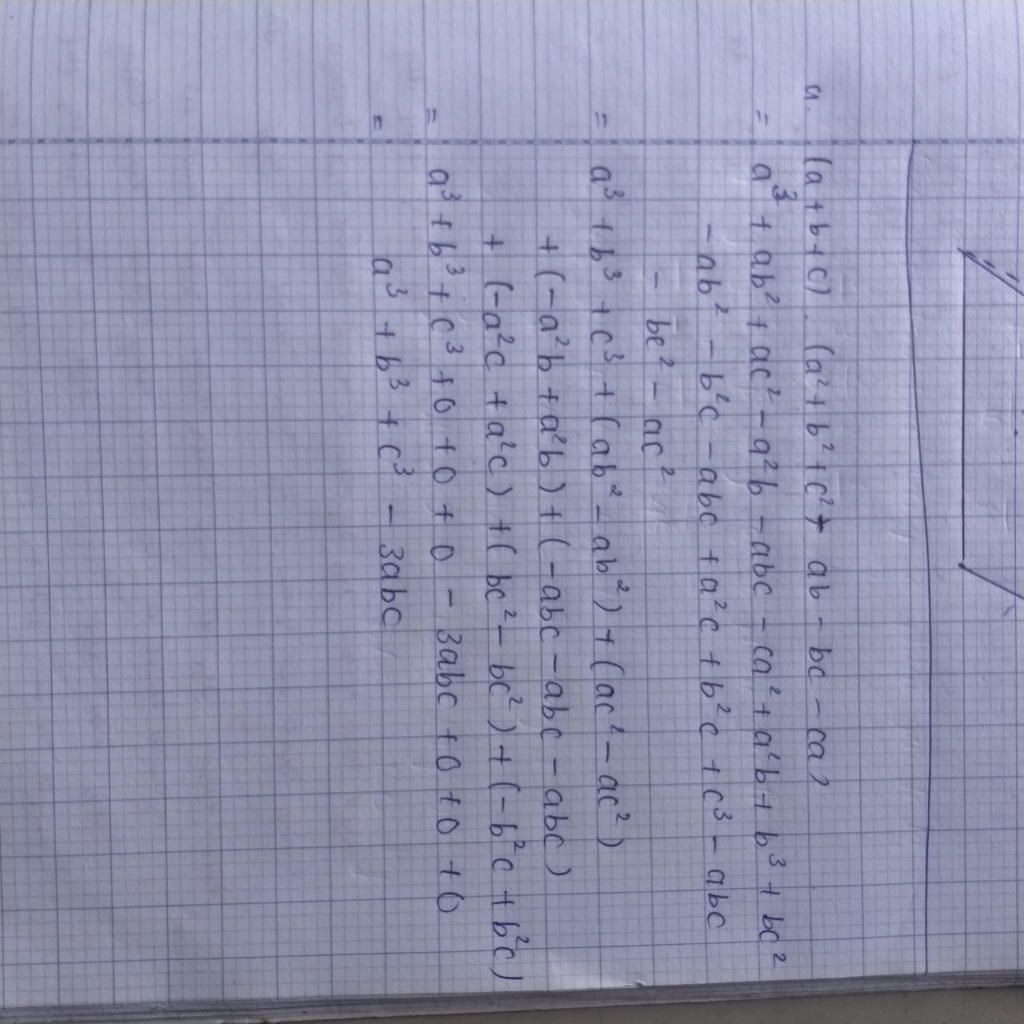 a. (a+b+c).(a²+b²+c²- ab - bc - ca)
= a³ + ab² + ac² - a²b - abc - ca² + a²b + b³ + bc²
- ab² - b²c - abc + a²c + b²c + c³ - abc
- bc² - ac²
= a³ + b³ + c³ + (ab² - ab²) + (ac² - ac²)
+ (-a²b + a²b) + (-abc - abc - abc)
+ (-a²c + a²c) + (bc² - bc²) + (-b²c + b²c)
= a³ + b³ + c³ + 0 + 0 + 0 - 3abc + 0 + 0 + 0
= a³ + b³ + c³ - 3abc